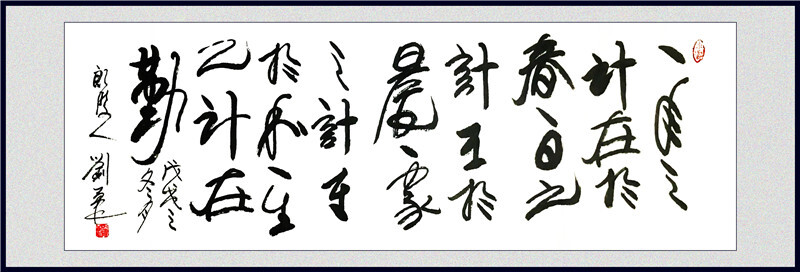 一年之
計在於
春一日之
計在於
晨一家
之計在
於和一生
之計在
勤
戊戌之
冬月
人劉